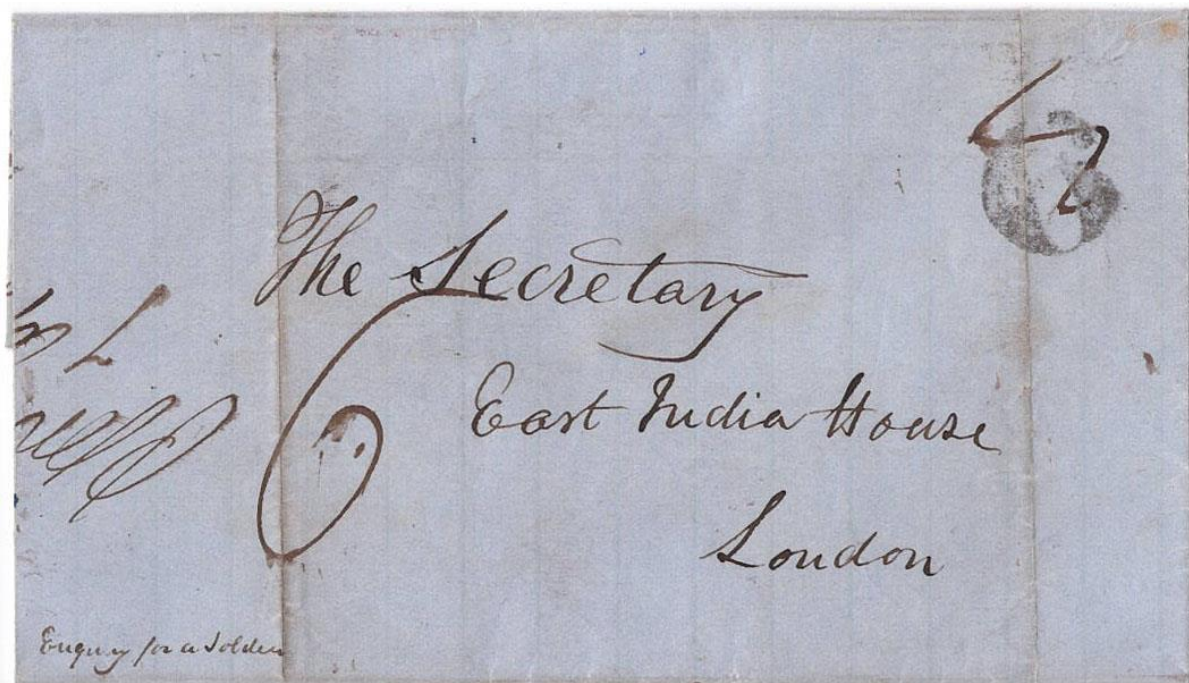 The Secretary
East India House
London
6
Enquiry for a Soldier